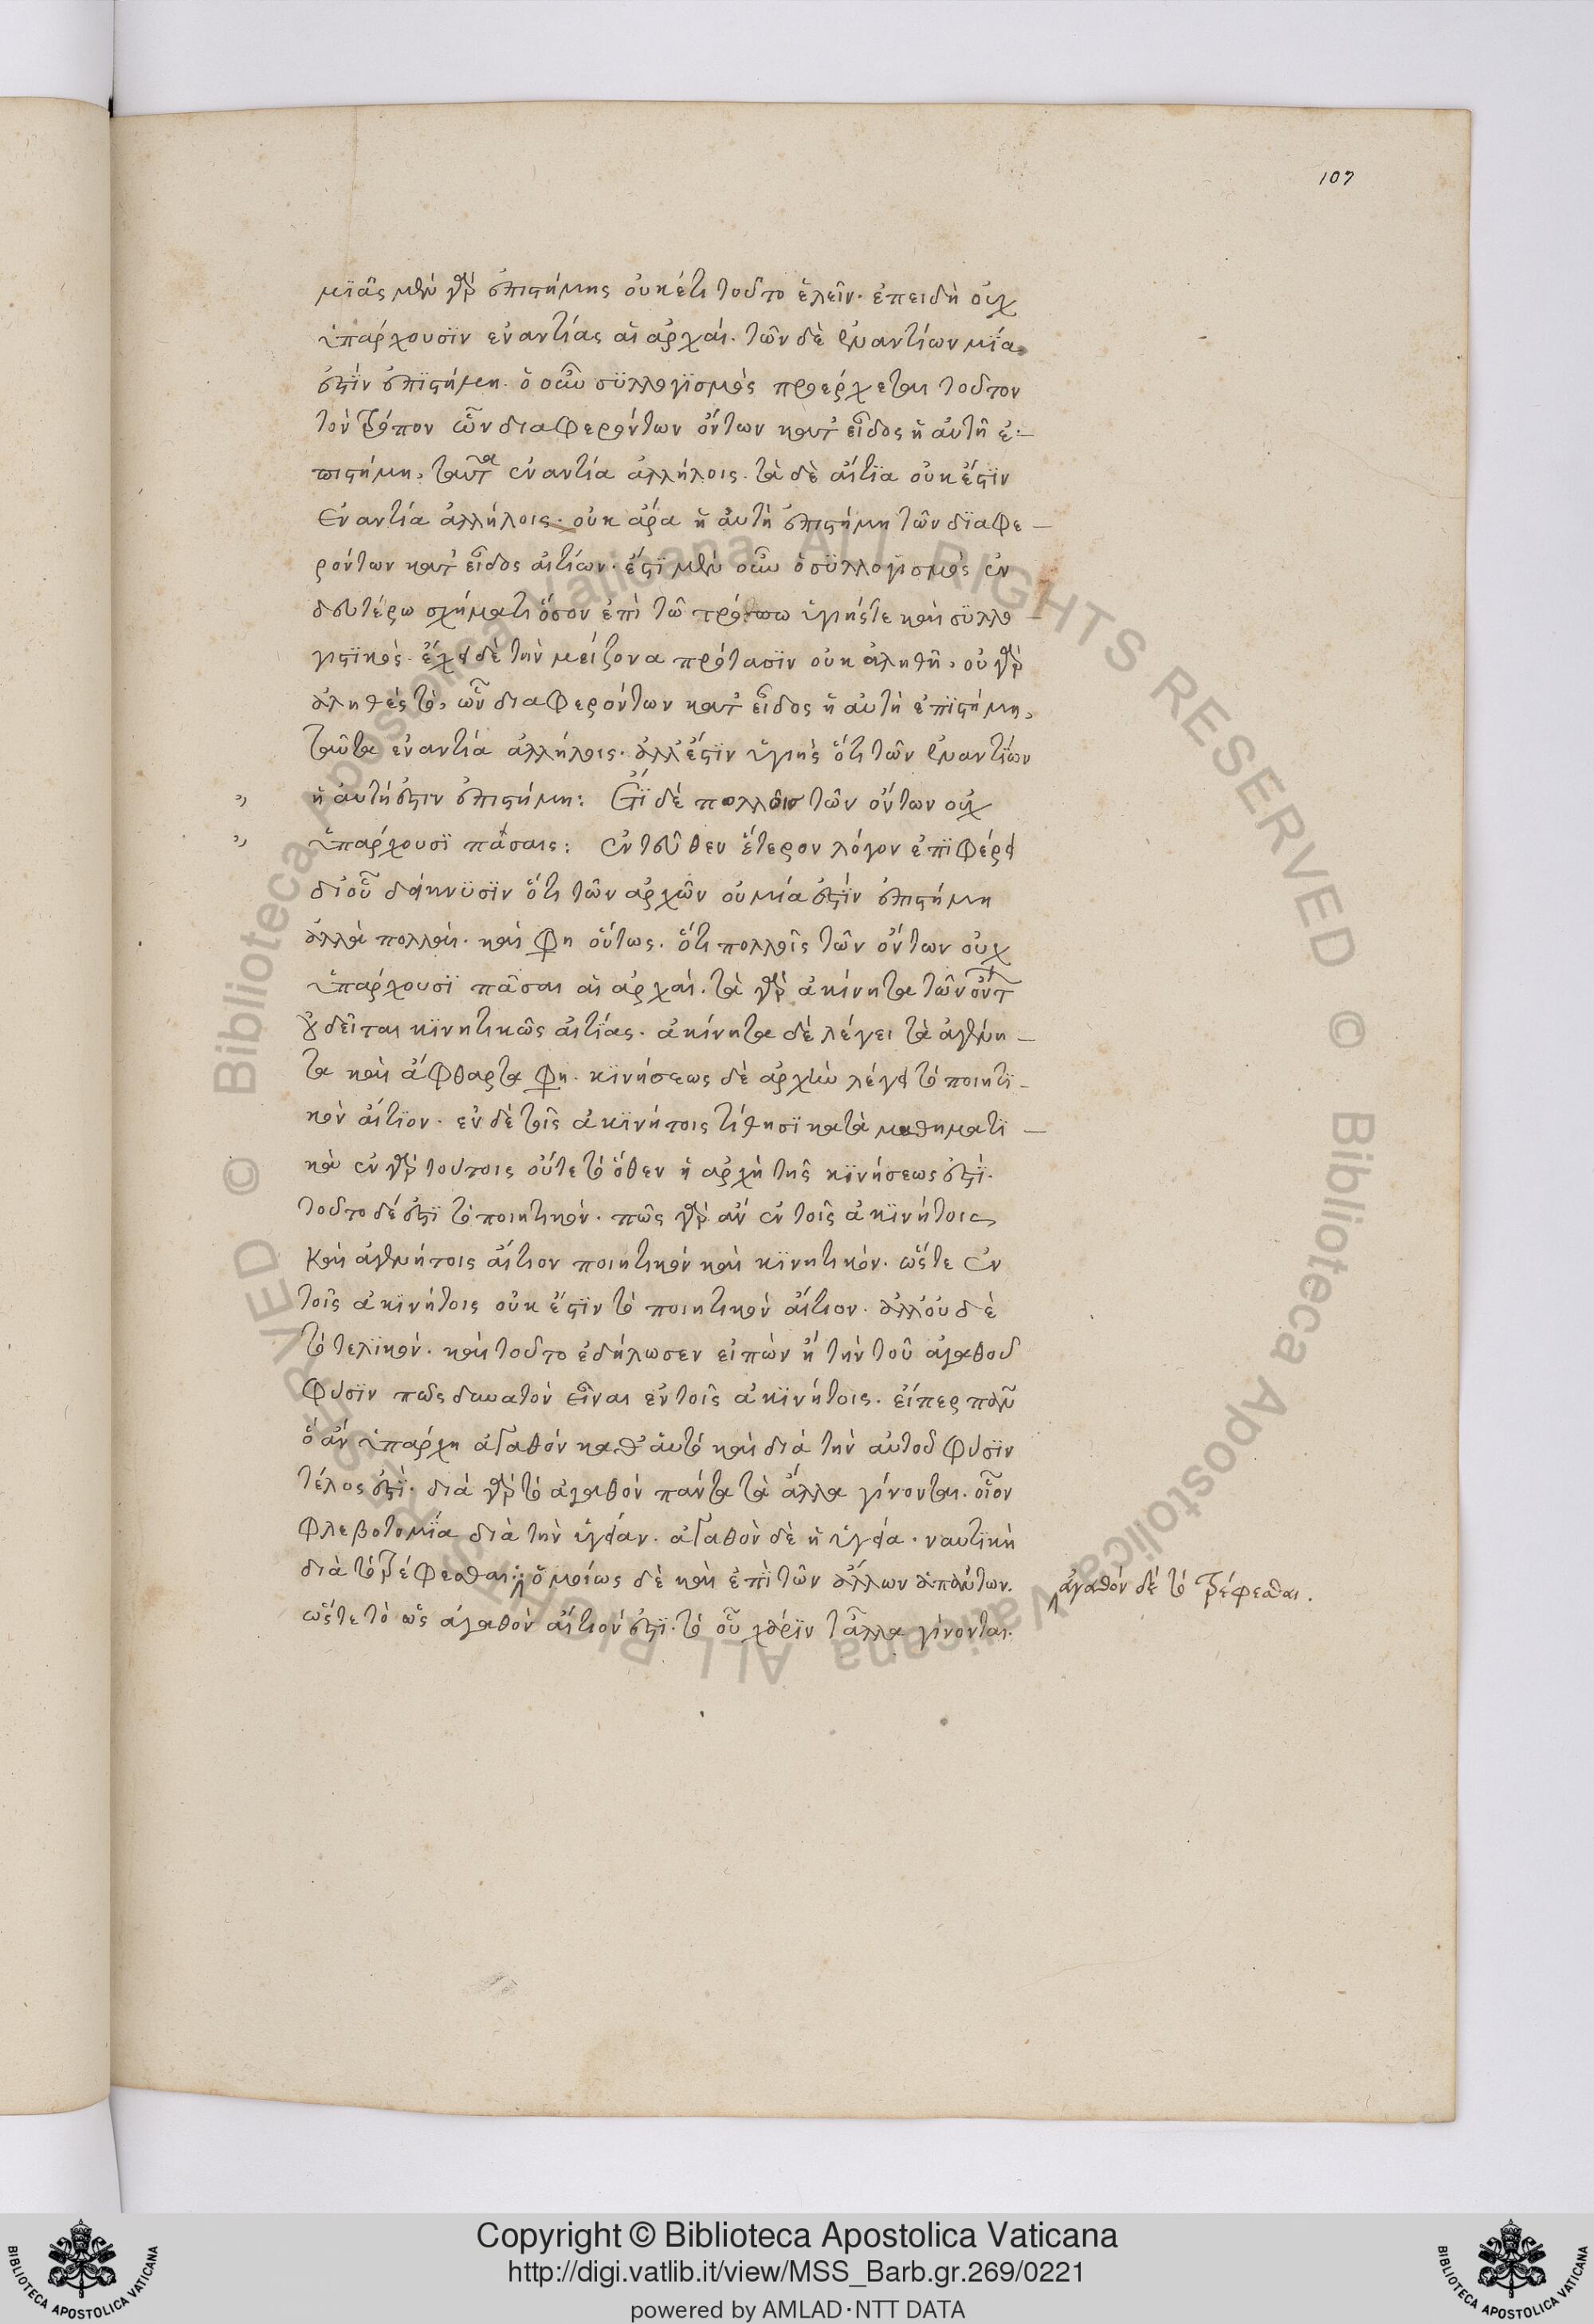 107
μϊᾶς μὲν γὰρ ἐπιστήμης οὐκέτι τοῦτο ἑλεῖν· ἐπειδὴ οὐχ
ὑπάρχουσϊν ἐναντίας αἱ ἀρχαί. τῶν δὲ ἐναντίων μΐα
ἐστὶν ἐπϊστήμη. ὁ οὖν σϋλλογϊσμὸς προέρχεται τοῦτον
τὸν τρόπον ὧν διαφερόντων ὄντων κατ' εἶδος ἡ αὐτὴ ἐ-
πιστήμη, ταῦτα ἐναντία ἀλλήλοις. τὰ δὲ αἴτϊα οὐκ ἔστϊν
ἐναντία ἀλλήλοις· οὐκ ἄρα ἡ αὐτὴ ἐπιστήμη τῶν δϊαφε-
ρόντων κατ' εἶδος αἰτίων· ἔστϊ μὲν οὖν ὁ σϋλλογισμὸς ἐν
δευτέρω σχήματι ὅσον ἐπὶ τῶ τρόπω ὑγιής τε καὶ σϋλλο-
γιστϊκός. ἔχει δὲ τὴν μείζονα πρότασϊν οὐκ ἀληθῆ, οὐ γὰρ
ἀληθές τὸ, ὧν διαφερόντων κατ' εἶδος ἡ αὐτὴ ἐπϊστήμη,
ταῦτα ἐναντία ἀλλήλοις. ἀλλ' ἔστϊν ὑγιὴς ὅτι τῶν ἐναντΐων
ἡ αὐτή ἐστιν ἐπιστήμη: Ἔτϊ δὲ πολλοῖς τῶν ὄντων οὐχ
ὑπάρχουσϊ πᾶσαι: ἐντεῦθεν ἕτερον λόγον ἐπϊφέρει
δι' οὗ δείκνϋσϊν ὅτι τῶν ἀρχῶν οὐ μία ἐστὶν ἐπιστήμη
ἀλλὰ πολλαί. καί φη οὕτως. ὅτι πολλοῖς τῶν ὄντων οὐχ
ὑπάρχουσϊ πᾶσαι αἱ ἀρχαί. τὰ γὰρ ἀκίνητα τῶν ὄντ
οὐ δεῖται κϊνητικῶς αἰτϊας. ἀκίνητα δὲ λέγει τὰ ἀγένη-
τα καὶ ἄφθαρτα φη. κϊνήσεως δὲ ἀρχὴν λέγει τὸ ποιητϊ-
κὸν αἴτϊον. ἐν δὲ τοῖς ἀκϊνήτοις τίθησϊ κατὰ μαθηματϊ-
κὰ ἐν γὰρ τούτοις οὔτε τὸ ὅθεν ἡ ἀρχὴ τῆς κϊνήσεως ἐστϊ.
τοῦτο δέ ἐστϊ τὸ ποιητικόν. πῶς γὰρ ἂν ἐν τοῖς ἀκϊνήτοις
καὶ ἀγενήτοις αἴτιον ποιητικόν καὶ κϊνητικόν. ὥστε ἐν
τοῖς ἀκϊνήτοις οὐκ ἔστϊν τὸ ποιητικὸν αἴτιον. ἀλλ' οὐδὲ
τὸ τελϊκόν. καὶ τοῦτο ἐδήλωσεν εἰπὼν ἢ τὴν τοῦ ἀγαθοῦ
φύσϊν πῶς δυνατὸν εἶναι ἐν τοῖς ἀκϊνήτοις. εἴπερ πᾶν
ὃ ἂν ὑπάρχη ἀγαθὸν καθ' αὑτὸ καὶ διὰ τὴν αὐτοῦ φύσϊν
τέλος ἐστϊ. διὰ γὰρ τὸ ἀγαθὸν πάντα τὰ ἄλλα γίνονται. οἷον
φλεβοτομΐα διὰ τὴν ὑγείαν. ἀγαθὸν δὲ ἡ ὑγεία. ναυτϊκὴ
διὰ τὸ τρέφεσθαι· ὁμοίως δὲ καὶ ἐπὶ τῶν ἄλλων ἁπάντων.
ἀγαθόν δὲ τὸ τρέφεσθαι.
ὥστε τὸ ὡς ἀγαθὸν αἴτιόν ἐστϊ. τὸ οὗ χάρϊν τἆλλα γίνονται.
Copyright © Biblioteca Apostolica Vaticana
http://digi.vatlib.it/view/MSS_Barb.gr.269/0221
powered by AMLAD·NTT DATA